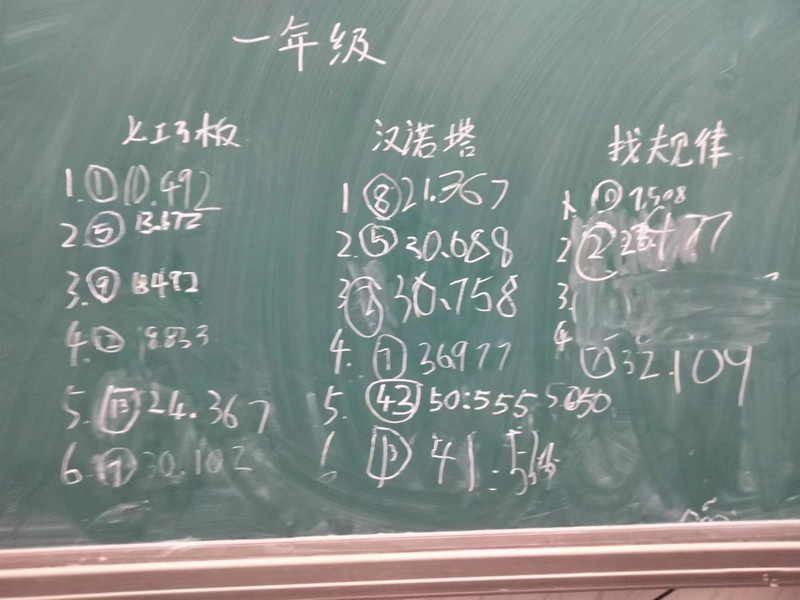 一年级
七巧板
1. ① 10.492
2. ⑤ 13.172
3. ⑨ 18492
4. ⑫ 18.833
5. ⑬ 24.367
6. 30.102
汉诺塔
1 ⑧ 21.367
2. ⑤ 30.688
3 30.758
4. ⑦ 36977
5. ㊸ 50:555
6 ⑬ 41:
找规律
1. 7.508
2 ②
3.
4 32.109